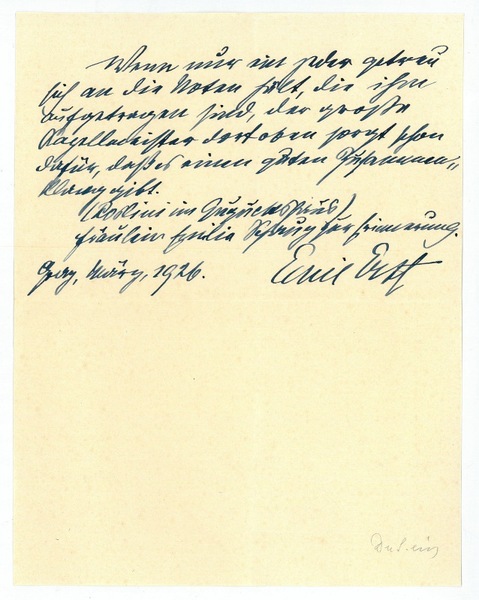 Wenn nur ein jeder getreu
sich an die Noten hält, die ihm
aufgetragen sind, der große
Kapellmeister dort oben sorgt schon
dafür, daß es einen guten Zusammen-
klang gibt.
(Rossini im Guguckshaus)
Fräulein Emilie zur Erinnerung.
Graz, März, 1926. Emil Ertl